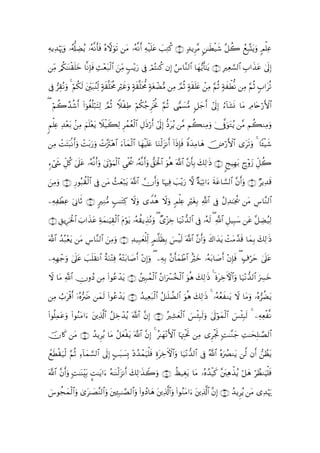 عِلْمٍ وَيَتَّبِعُ كُلَّ شَيْطَٰنٍ مَّرِيدٍ ۝ كُتِبَ عَلَيْهِ أَنَّهُۥ مَن تَوَلَّاهُ فَأَنَّهُۥ يُضِلُّهُۥ وَيَهْدِيهِ
إِلَىٰ عَذَابِ ٱلسَّعِيرِ ۝ يَٰٓأَيُّهَا ٱلنَّاسُ إِن كُنتُمْ فِى رَيْبٍ مِّنَ ٱلْبَعْثِ فَإِنَّا خَلَقْنَٰكُم مِّن
تُرَابٍ ثُمَّ مِن نُّطْفَةٍ ثُمَّ مِنْ عَلَقَةٍ ثُمَّ مِن مُّضْغَةٍ مُّخَلَّقَةٍ وَغَيْرِ مُخَلَّقَةٍ لِّنُبَيِّنَ لَكُمْ ۚ وَنُقِرُّ فِى
ٱلْأَرْحَامِ مَا نَشَآءُ إِلَىٰٓ أَجَلٍ مُّسَمًّى ثُمَّ نُخْرِجُكُمْ طِفْلًا ثُمَّ لِتَبْلُغُوٓا۟ أَشُدَّكُمْ ۖ
وَمِنكُم مَّن يُتَوَفَّىٰ وَمِنكُم مَّن يُرَدُّ إِلَىٰٓ أَرْذَلِ ٱلْعُمُرِ لِكَيْلَا يَعْلَمَ مِنۢ بَعْدِ عِلْمٍ
شَيْـًٔا ۚ وَتَرَى ٱلْأَرْضَ هَامِدَةً فَإِذَآ أَنزَلْنَا عَلَيْهَا ٱلْمَآءَ ٱهْتَزَّتْ وَرَبَتْ وَأَنۢبَتَتْ مِن
كُلِّ زَوْجٍۭ بَهِيجٍ ۝ ذَٰلِكَ بِأَنَّ ٱللَّهَ هُوَ ٱلْحَقُّ وَأَنَّهُۥ يُحْىِ ٱلْمَوْتَىٰ وَأَنَّهُۥ عَلَىٰ كُلِّ شَىْءٍ
قَدِيرٌ ۝ وَأَنَّ ٱلسَّاعَةَ ءَاتِيَةٌ لَّا رَيْبَ فِيهَا وَأَنَّ ٱللَّهَ يَبْعَثُ مَن فِى ٱلْقُبُورِ ۝ وَمِنَ
ٱلنَّاسِ مَن يُجَٰدِلُ فِى ٱللَّهِ بِغَيْرِ عِلْمٍ وَلَا هُدًى وَلَا كِتَٰبٍ مُّنِيرٍ ۝ ثَانِىَ عِطْفِهِۦ
لِيُضِلَّ عَن سَبِيلِ ٱللَّهِ ۖ لَهُۥ فِى ٱلدُّنْيَا خِزْىٌ ۖ وَنُذِيقُهُۥ يَوْمَ ٱلْقِيَٰمَةِ عَذَابَ ٱلْحَرِيقِ ۝
ذَٰلِكَ بِمَا قَدَّمَتْ يَدَاكَ وَأَنَّ ٱللَّهَ لَيْسَ بِظَلَّٰمٍ لِّلْعَبِيدِ ۝ وَمِنَ ٱلنَّاسِ مَن يَعْبُدُ ٱللَّهَ
عَلَىٰ حَرْفٍ ۖ فَإِنْ أَصَابَهُۥ خَيْرٌ ٱطْمَأَنَّ بِهِۦ ۖ وَإِنْ أَصَابَتْهُ فِتْنَةٌ ٱنقَلَبَ عَلَىٰ وَجْهِهِۦ
خَسِرَ ٱلدُّنْيَا وَٱلْءَاخِرَةَ ۚ ذَٰلِكَ هُوَ ٱلْخُسْرَانُ ٱلْمُبِينُ ۝ يَدْعُوا۟ مِن دُونِ ٱللَّهِ مَا لَا
يَضُرُّهُۥ وَمَا لَا يَنفَعُهُۥ ۚ ذَٰلِكَ هُوَ ٱلضَّلَٰلُ ٱلْبَعِيدُ ۝ يَدْعُوا۟ لَمَن ضَرُّهُۥٓ أَقْرَبُ مِن
نَّفْعِهِۦ ۚ لَبِئْسَ ٱلْمَوْلَىٰ وَلَبِئْسَ ٱلْعَشِيرُ ۝ إِنَّ ٱللَّهَ يُدْخِلُ ٱلَّذِينَ ءَامَنُوا۟ وَعَمِلُوا۟
ٱلصَّٰلِحَٰتِ جَنَّٰتٍ تَجْرِى مِن تَحْتِهَا ٱلْأَنْهَٰرُ ۚ إِنَّ ٱللَّهَ يَفْعَلُ مَا يُرِيدُ ۝ مَن كَانَ
يَظُنُّ أَن لَّن يَنصُرَهُ ٱللَّهُ فِى ٱلدُّنْيَا وَٱلْءَاخِرَةِ فَلْيَمْدُدْ بِسَبَبٍ إِلَى ٱلسَّمَآءِ ثُمَّ لْيَقْطَعْ
فَلْيَنظُرْ هَلْ يُذْهِبَنَّ كَيْدُهُۥ مَا يَغِيظُ ۝ وَكَذَٰلِكَ أَنزَلْنَٰهُ ءَايَٰتٍۭ بَيِّنَٰتٍ وَأَنَّ ٱللَّهَ
يَهْدِى مَن يُرِيدُ ۝ إِنَّ ٱلَّذِينَ ءَامَنُوا۟ وَٱلَّذِينَ هَادُوا۟ وَٱلصَّٰبِـِٔينَ وَٱلنَّصَٰرَىٰ وَٱلْمَجُوسَ